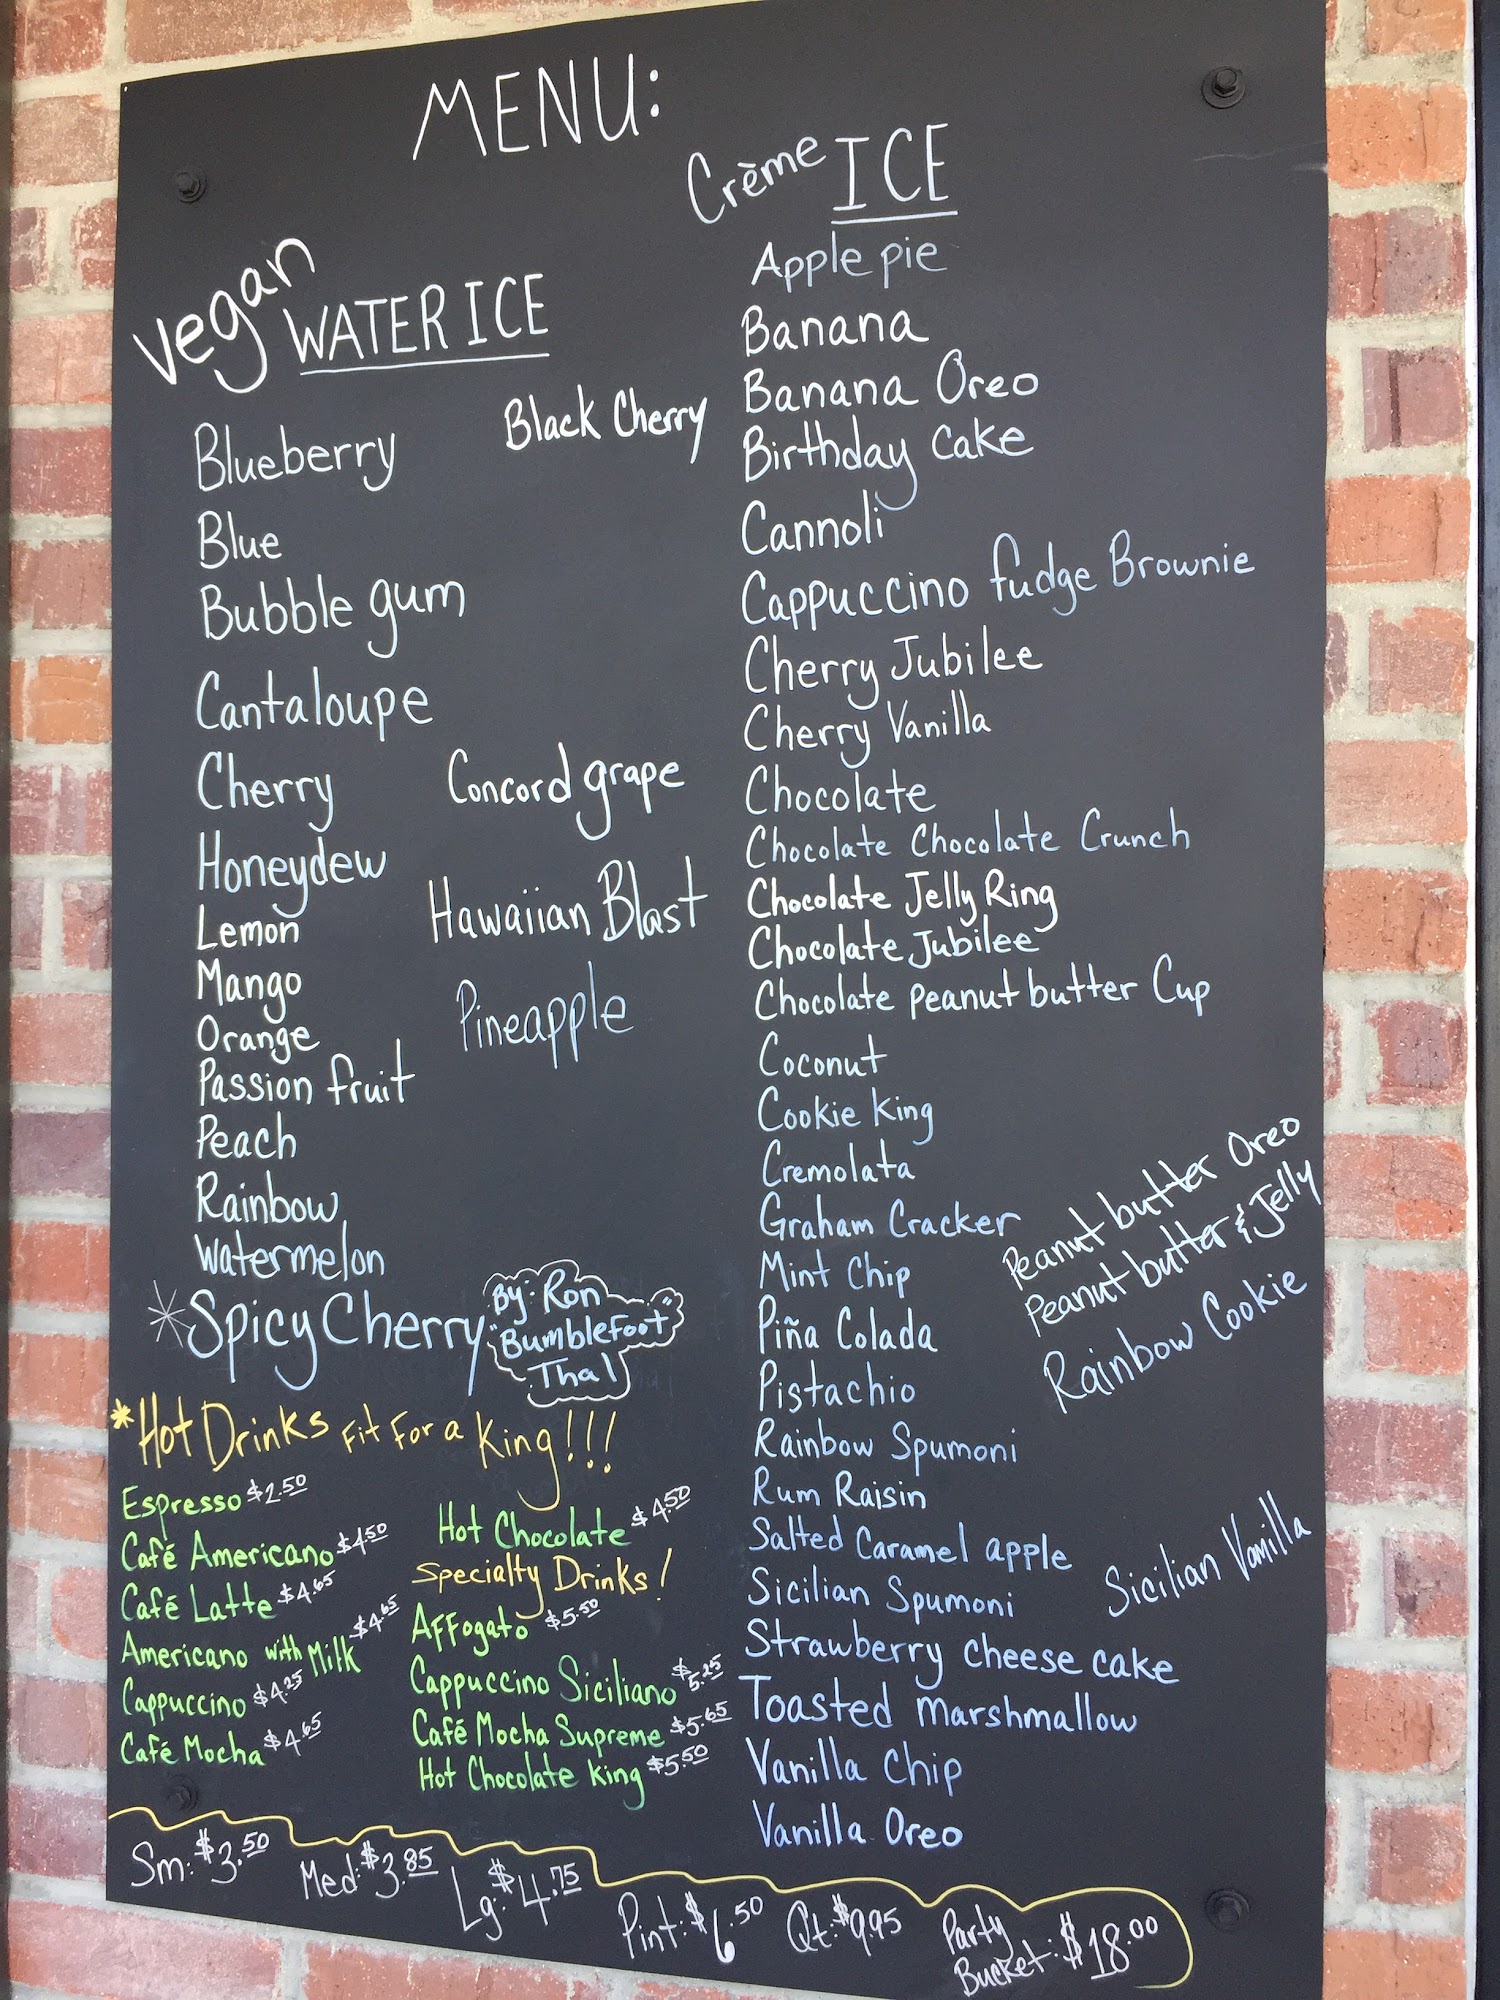 MENU:
Vegan
WATER ICE
Blueberry
Black Cherry
Blue
Bubble gum
Cantaloupe
Cherry
Concord grape
Honeydew
Hawaiian Blast
Lemon
Mango
Pineapple
Orange
Passion fruit
Peach
Rainbow
Watermelon
*Spicy Cherry
By: Ron
"Bumblefoot"
Thal
*Hot Drinks Fit For a King!!!
Espresso $2.50
Café Americano $4.50
Café Latte $4.65
Americano with Milk $4.65
Cappuccino $4.25
Café Mocha $4.65
Hot Chocolate $4.50
Specialty Drinks!
Affogato $5.50
Cappuccino Siciliano $5.25
Café Mocha Supreme $5.65
Hot Chocolate King $5.50
Crème ICE
Apple pie
Banana
Banana Oreo
Birthday Cake
Cannoli
Cappuccino fudge Brownie
Cherry Jubilee
Cherry Vanilla
Chocolate
Chocolate Chocolate Crunch
Chocolate Jelly Ring
Chocolate Jubilee
Chocolate peanut butter Cup
Coconut
Cookie King
Cremolata
Graham Cracker
Mint Chip
Piña Colada
Pistachio
Rainbow Spumoni
Rum Raisin
Salted Caramel apple
Sicilian Spumoni
Strawberry Cheese cake
Toasted Marshmallow
Vanilla Chip
Vanilla Oreo
Peanut butter Oreo
Peanut butter & Jelly
Rainbow Cookie
Sicilian Vanilla
Sm: $3.50
Med: $3.85
Lg: $4.75
Pint: $6.50
Qt: $9.95
Party
Bucket: $18.00